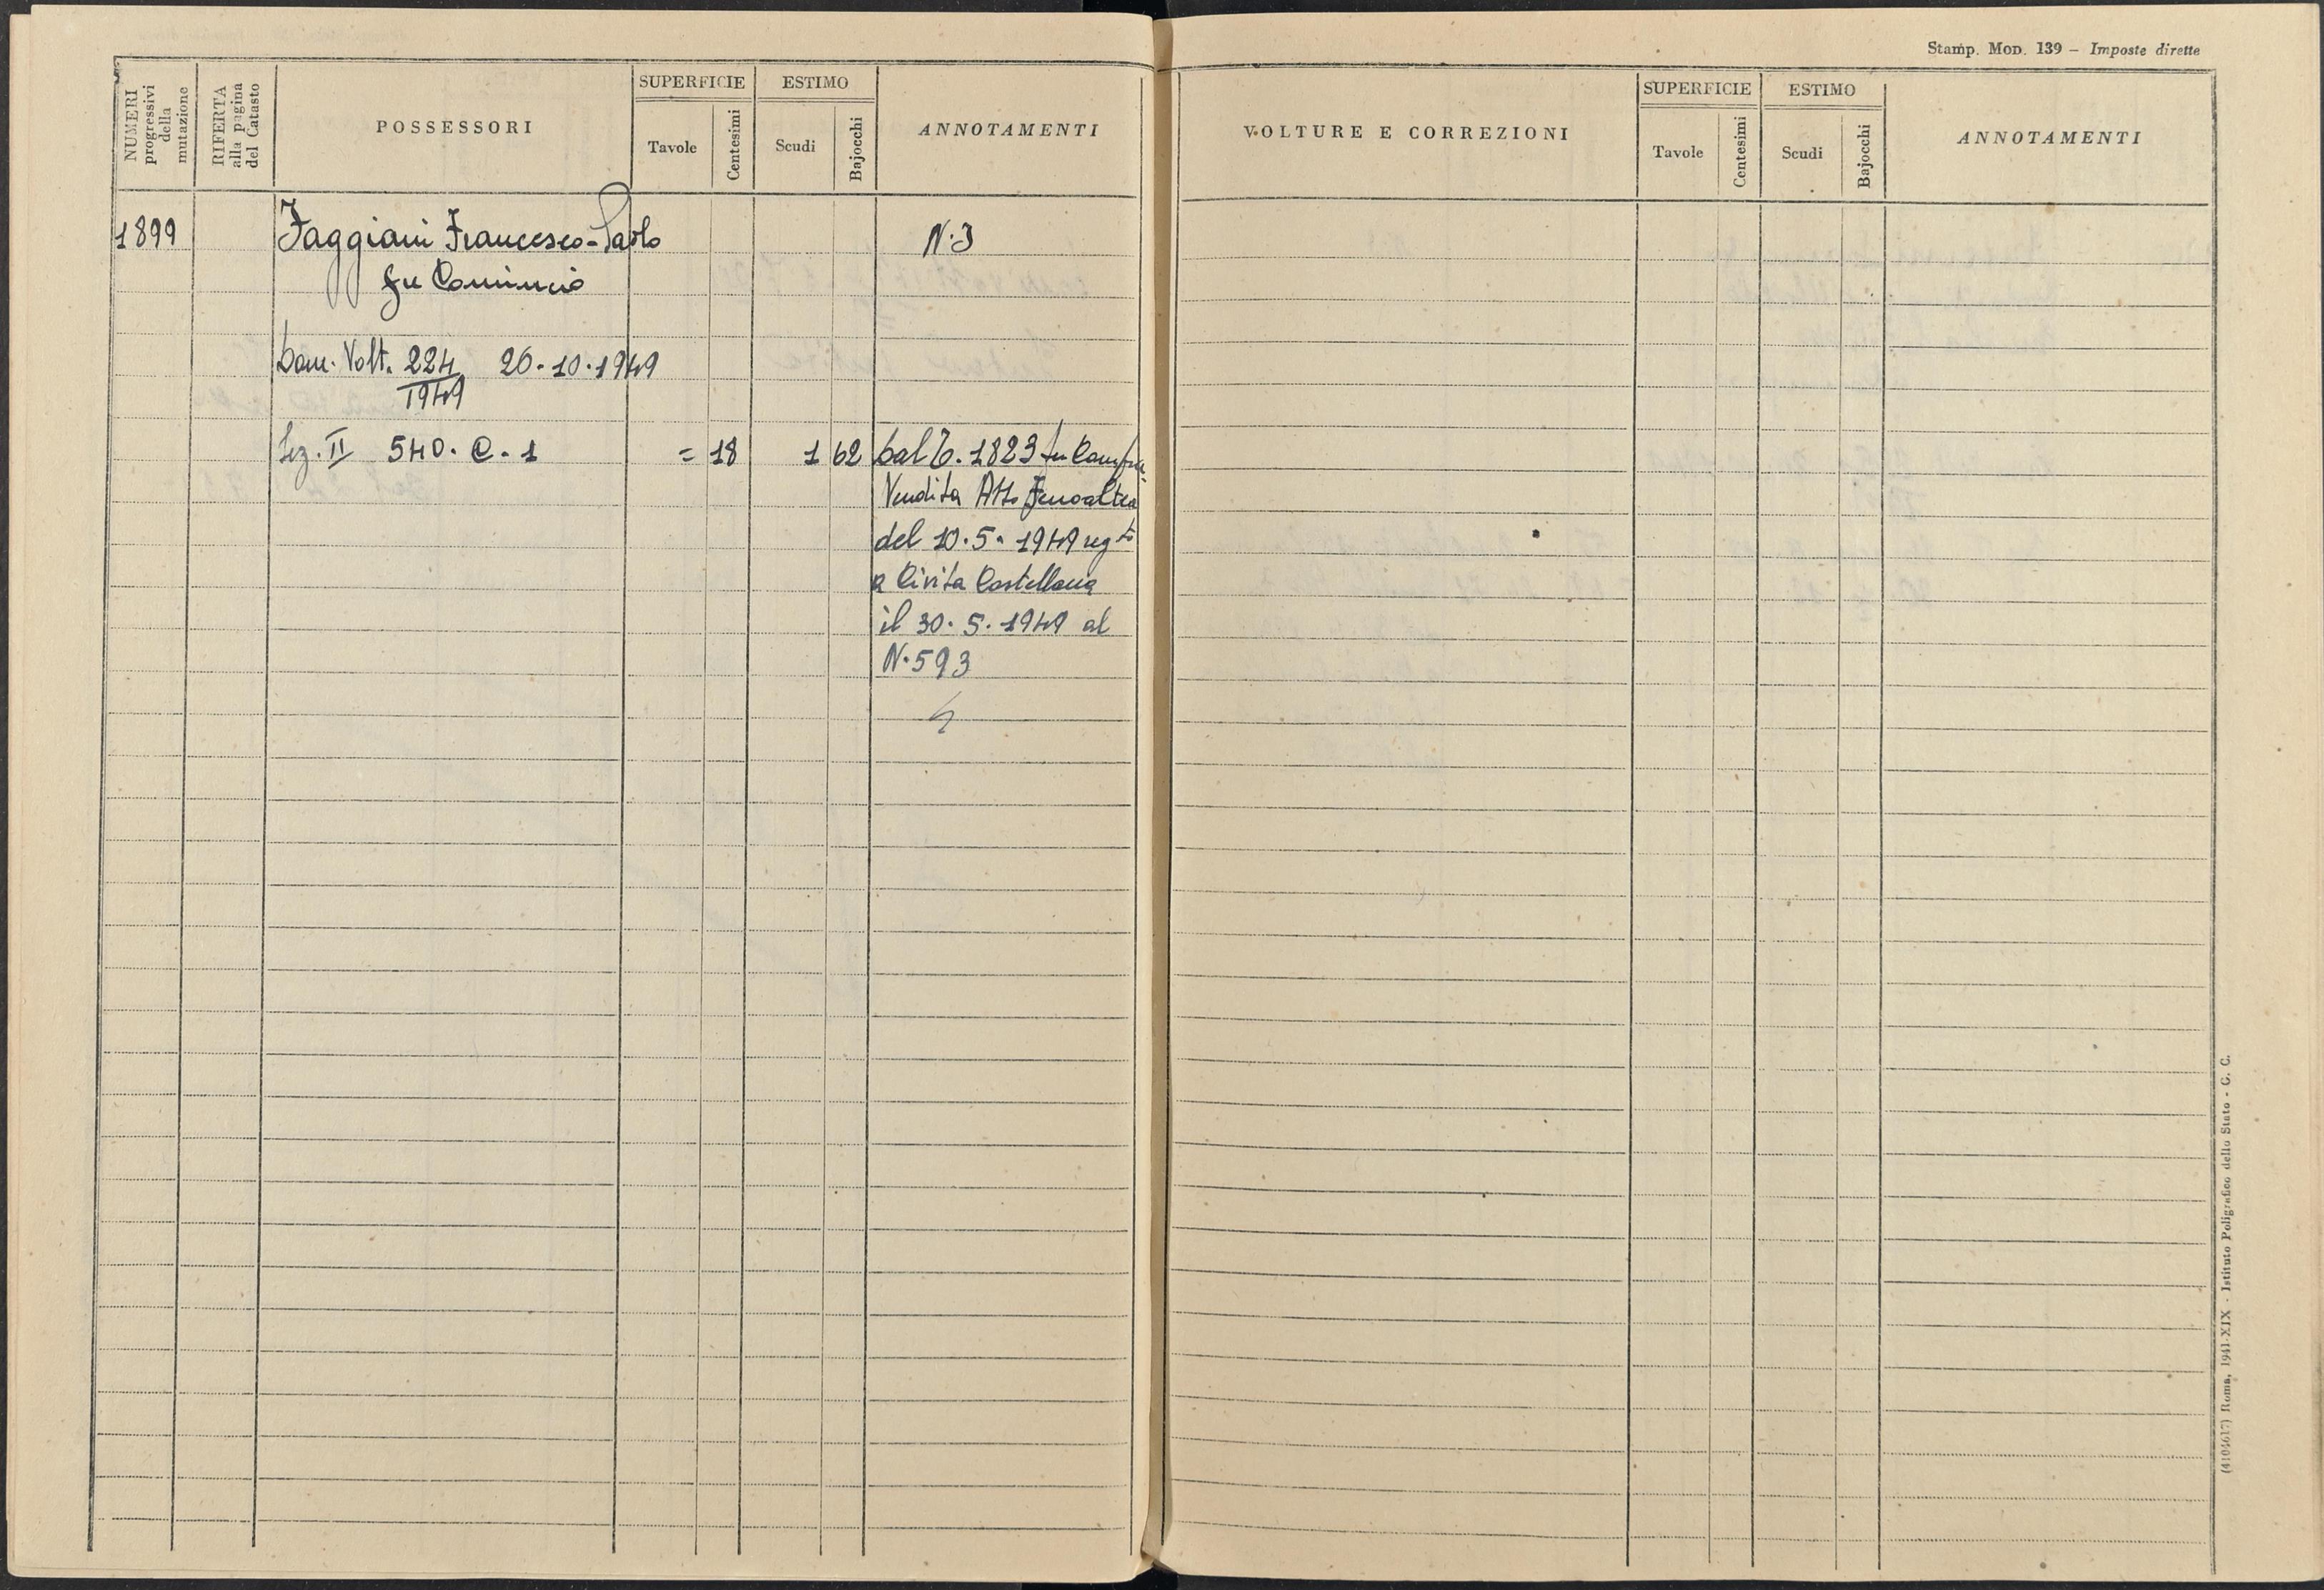 Stamp. Mod. 139 – Imposte dirette
NUMERI
progressivi
della
mutazione
RIFERTA
alla pagina
del Catasto
POSSESSORI
SUPERFICIE
Tavole
Centesimi
ESTIMO
Scudi
Bajocchi
ANNOTAMENTI
VOLTURE E CORREZIONI
SUPERFICIE
Tavole
Centesimi
ESTIMO
Scudi
Bajocchi
ANNOTAMENTI
1899 Faggiani Francesco-Paolo
fu
Dom. Volt. 224 26.10.1949
1949
Sez. II 540. C. 1 = 18 1 62
Dal 1823
Vendita Atto Fenoaltea
del 10.5.1949 regto
a Civita Castellana
il 30.5.1949 al
N.593
(4104617) Roma, 1941-XIX - Istituto Poligrafico dello Stato - G. C.